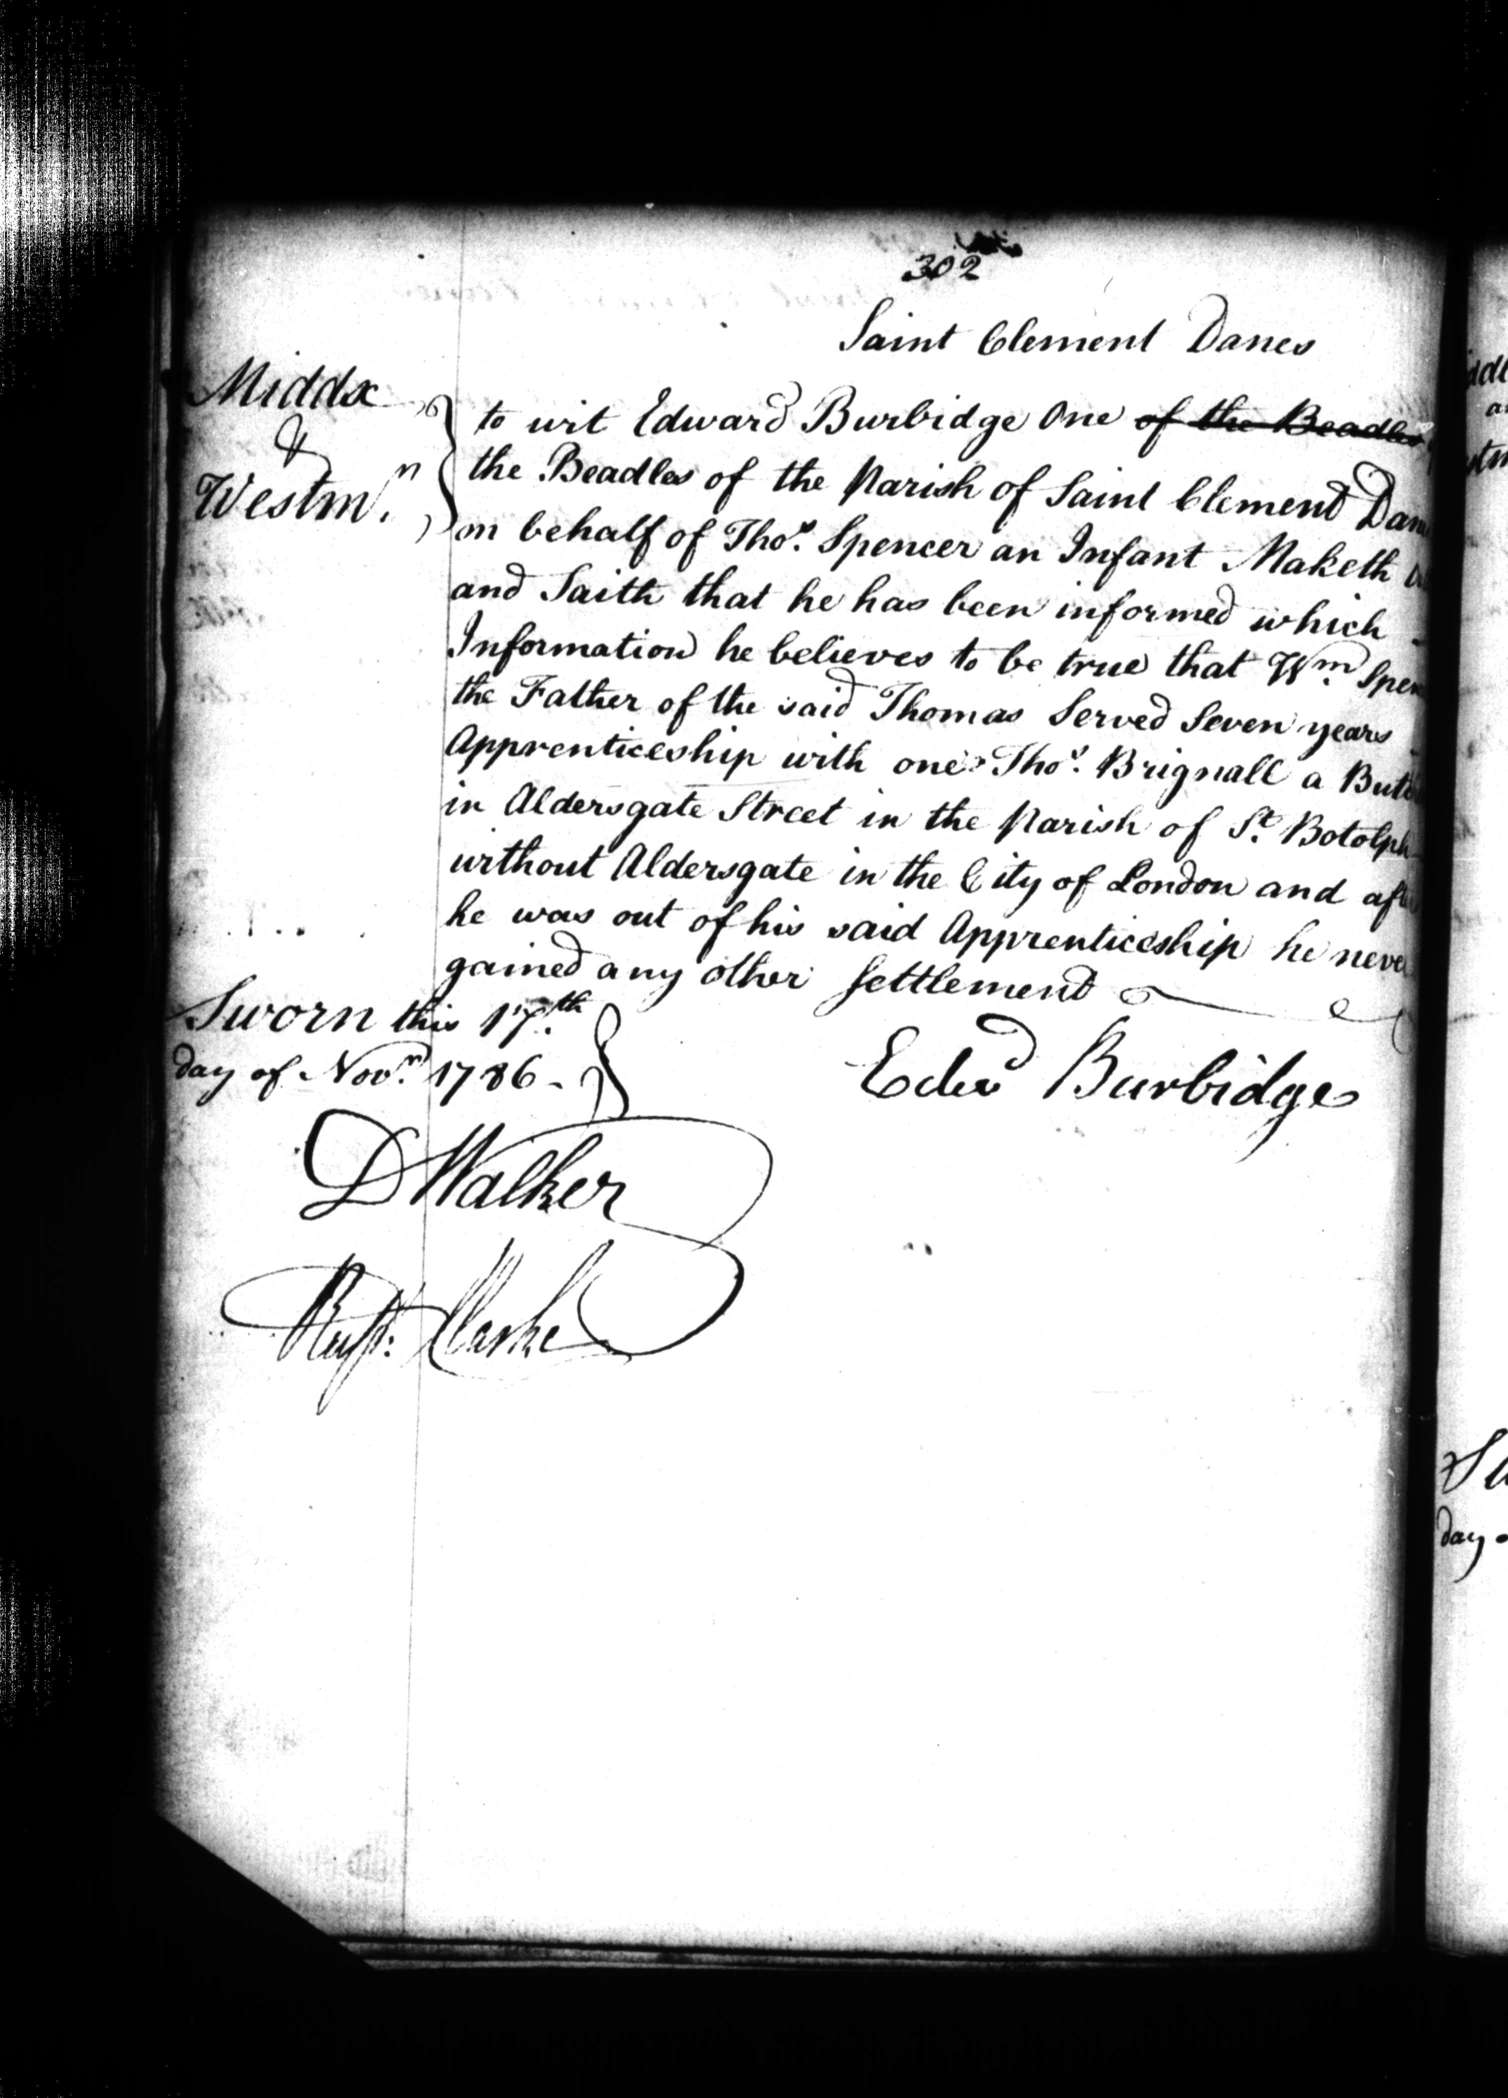 302
Saint Clement Danes
Middx
&
Westmr.
to wit Edward Burbidge One of the Beadles
the Beadles of the Parish of Saint Clement Dan
on behalf of Thos. Spencer an Infant Maketh
and Saith that he has been informed which
Information he believes to be true that Wm. Spen
the Father of the said Thomas Served Seven years
Apprenticeship with one Thos. Brignall a Butc
in Aldersgate Street in the Parish of St. Botolph
without Aldersgate in the City of London and afte
he was out of his said Apprenticeship he neve
gained any other Settlement
Sworn this 17th.
day of Novr. 1786
Edwd Burbidge
D Walker
Clarke
Su
day